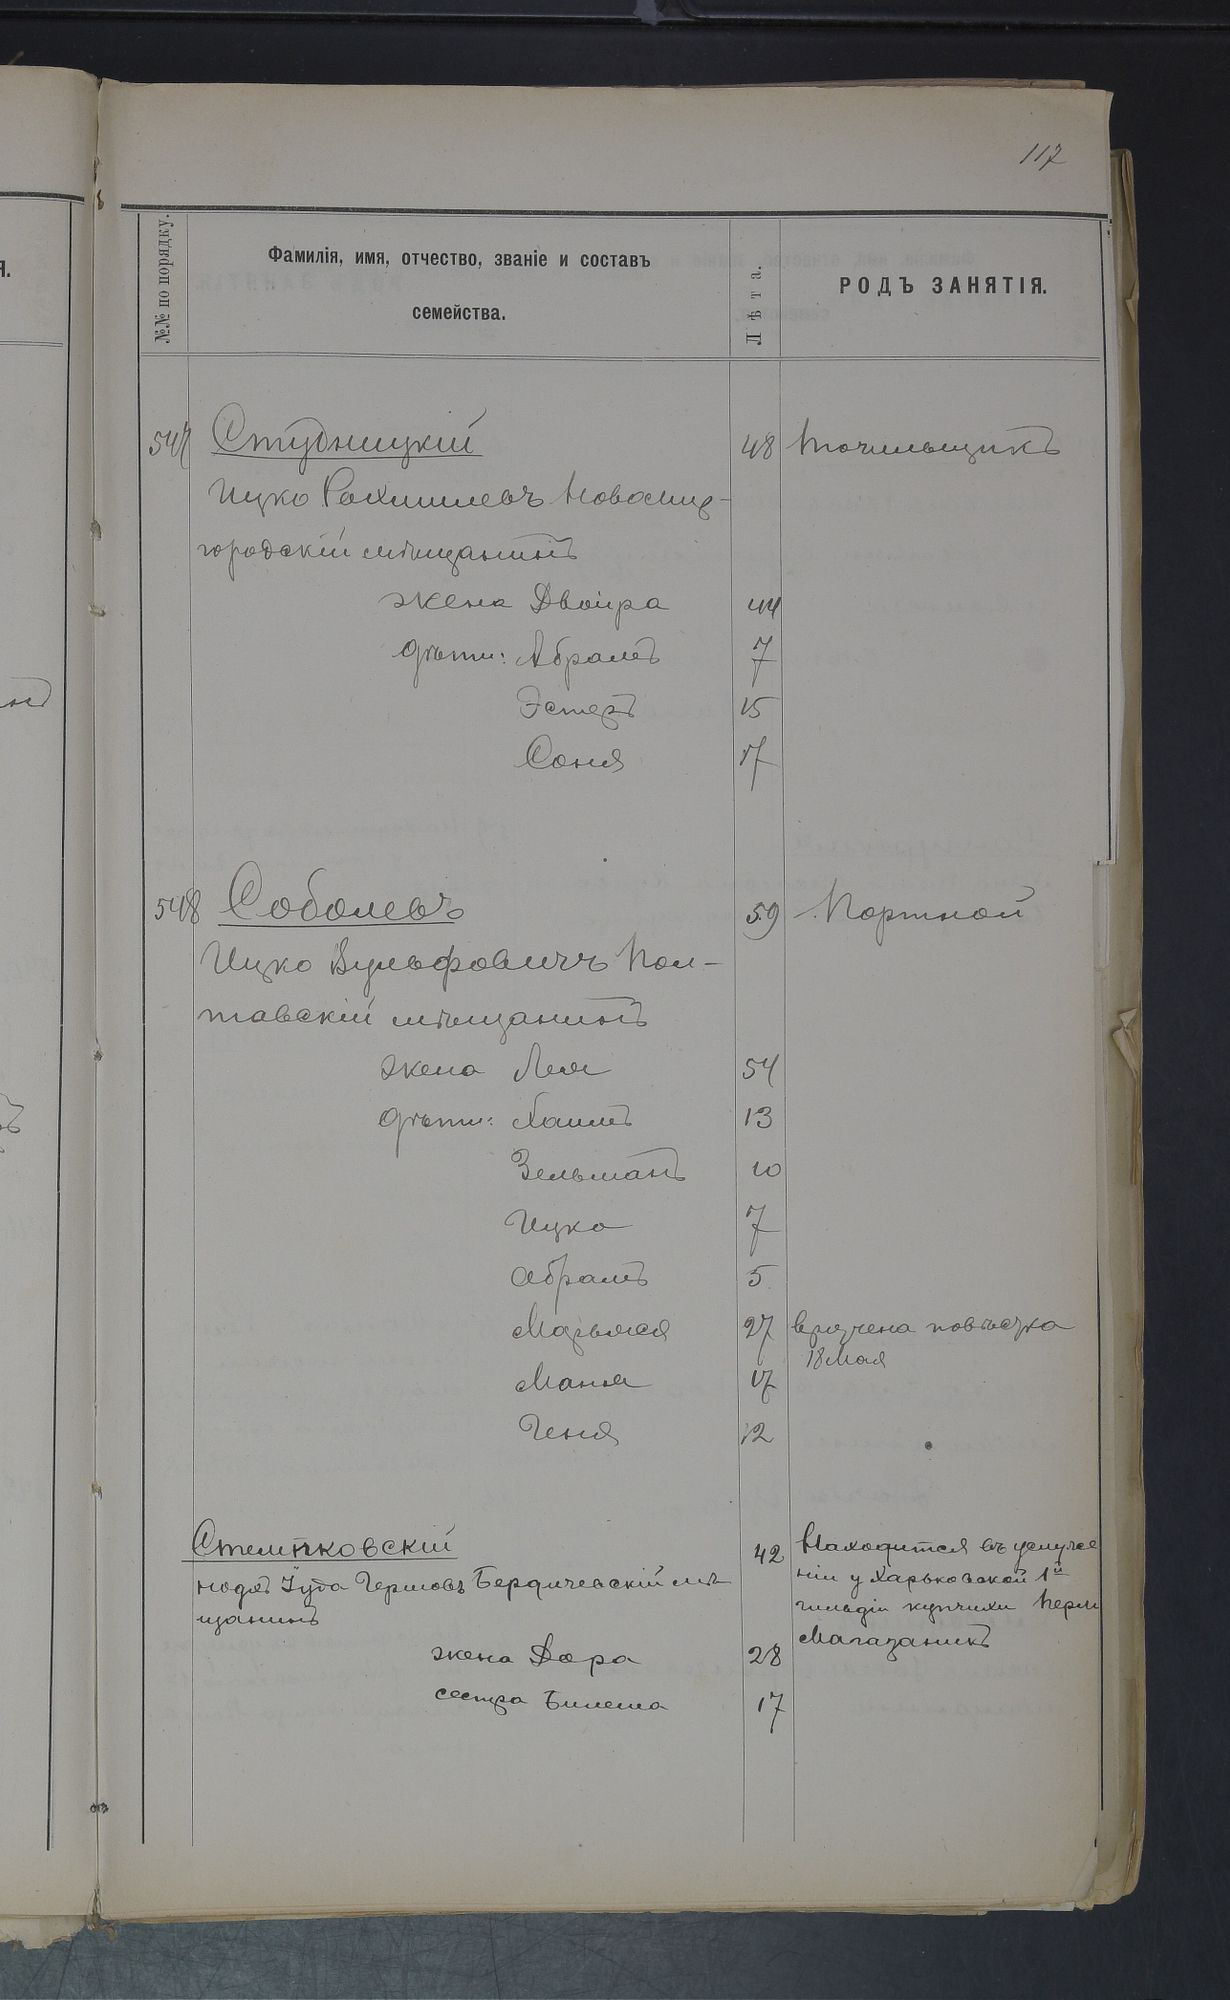 117
№№ по порядку.
Фамилія, имя, отчество, званіе и составъ
семейства.
Лѣта.
РОДЪ ЗАНЯТІЯ.
547 Студницкій 48 Точильщикъ
Ицко Рахмилевъ Новомир-
городскій мѣщанинъ
жена Двойра 44
дѣти: Абрамъ 7
Эстеръ 15
Соня 17
548 Соболевъ 59 Портной
Ицко Вульфовичъ Пол-
тавскій мѣщанинъ
жена Лея 54
дѣти: Хаимъ 13
Зельманъ 10
Ицко 7
Абрамъ 5
Марьяся 27 вручена повѣстка
18 Мая
Маня 17
Геня 12
Стемпковскій 42 Находится въ услуже
Іуда Гершовъ Бердичевскій мѣ
щанинъ
ніи у Харьковской 1й
гильдіи купчихи Перли
Магазаникъ
жена Дора 28
сестра 17